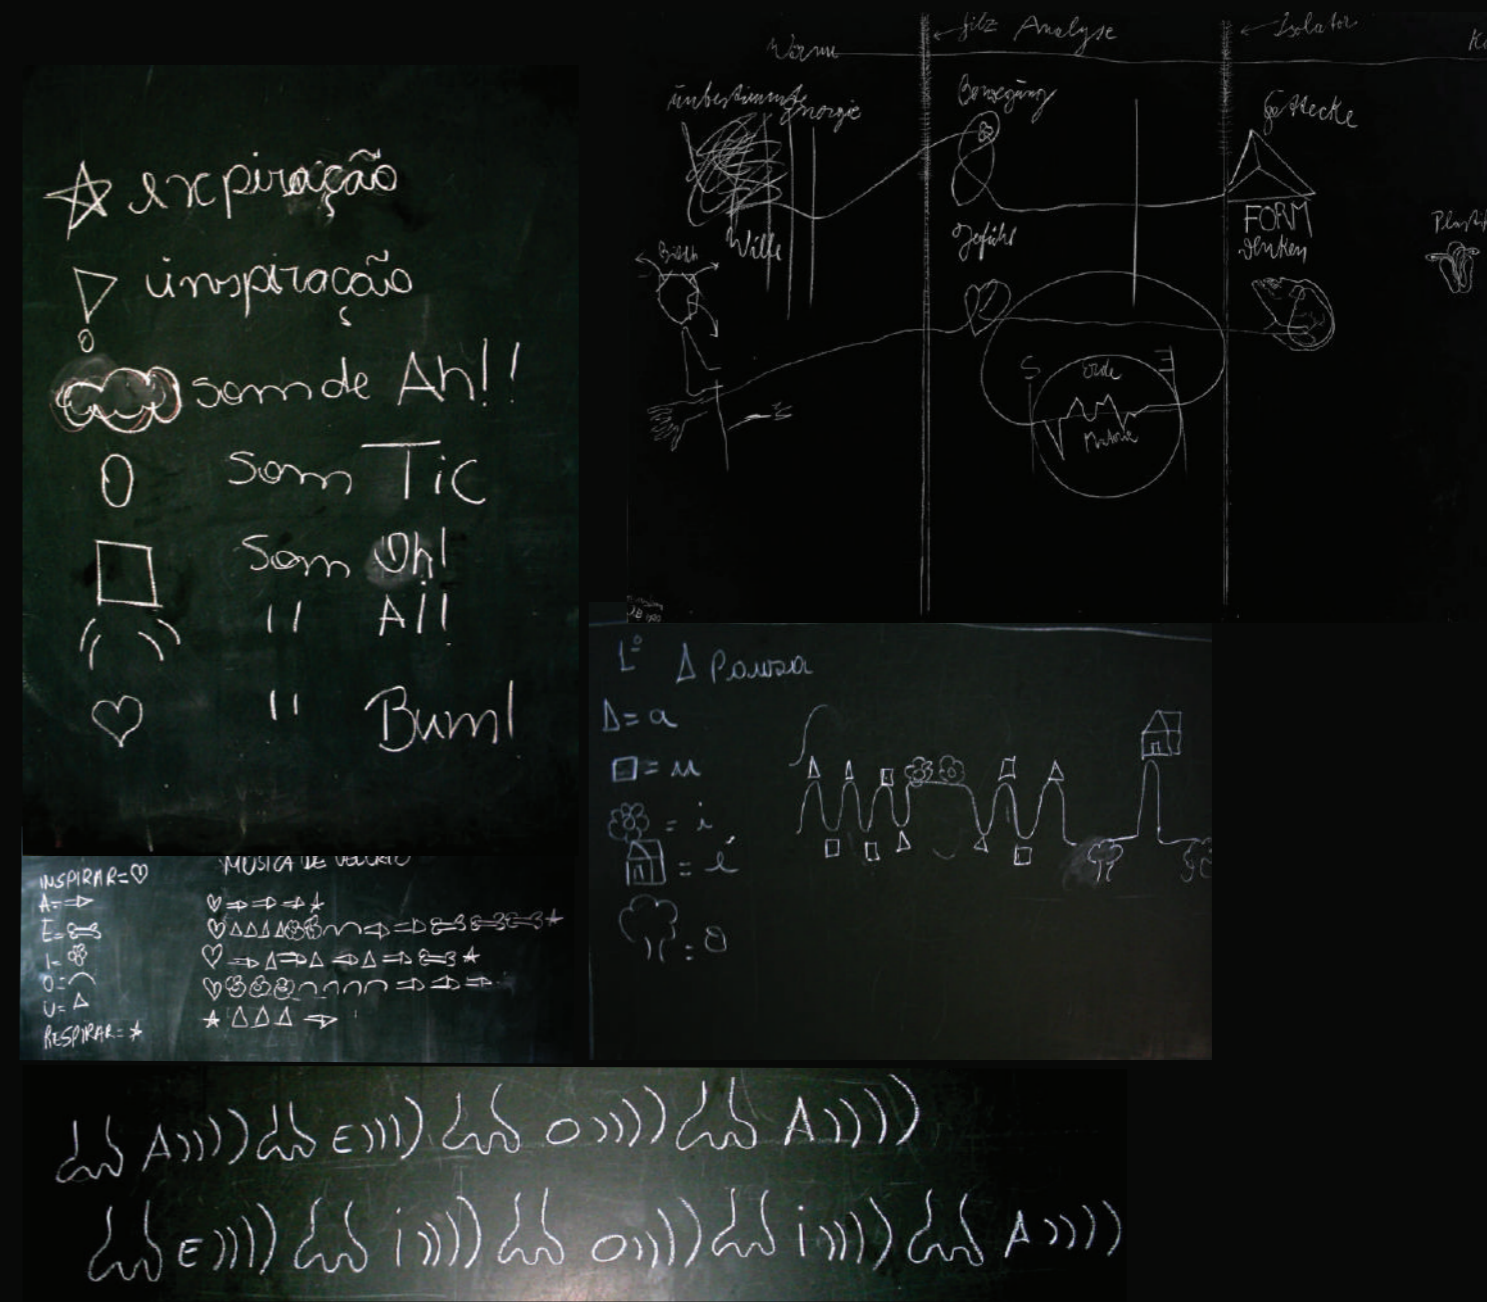 expiração
inspiração
som de Ah!!
som Tic
som Oh!
" Ai!
" Bum!
Warm
filz Analyse
Isolator
unbestimmte
Energie
Bewegung
Wille
Gefühl
FORM
Denken
S E
Erde
1º Δ Pausa
Δ = a
□ = u
= i
= é
= o
INSPIRAR=♡
A=
E=
I=
O=
U= Δ
RESPIRAR=
MÚSICA DE
A)))) E)))) O)))) A))))
E)))) i)))) O)))) i)))) A))))